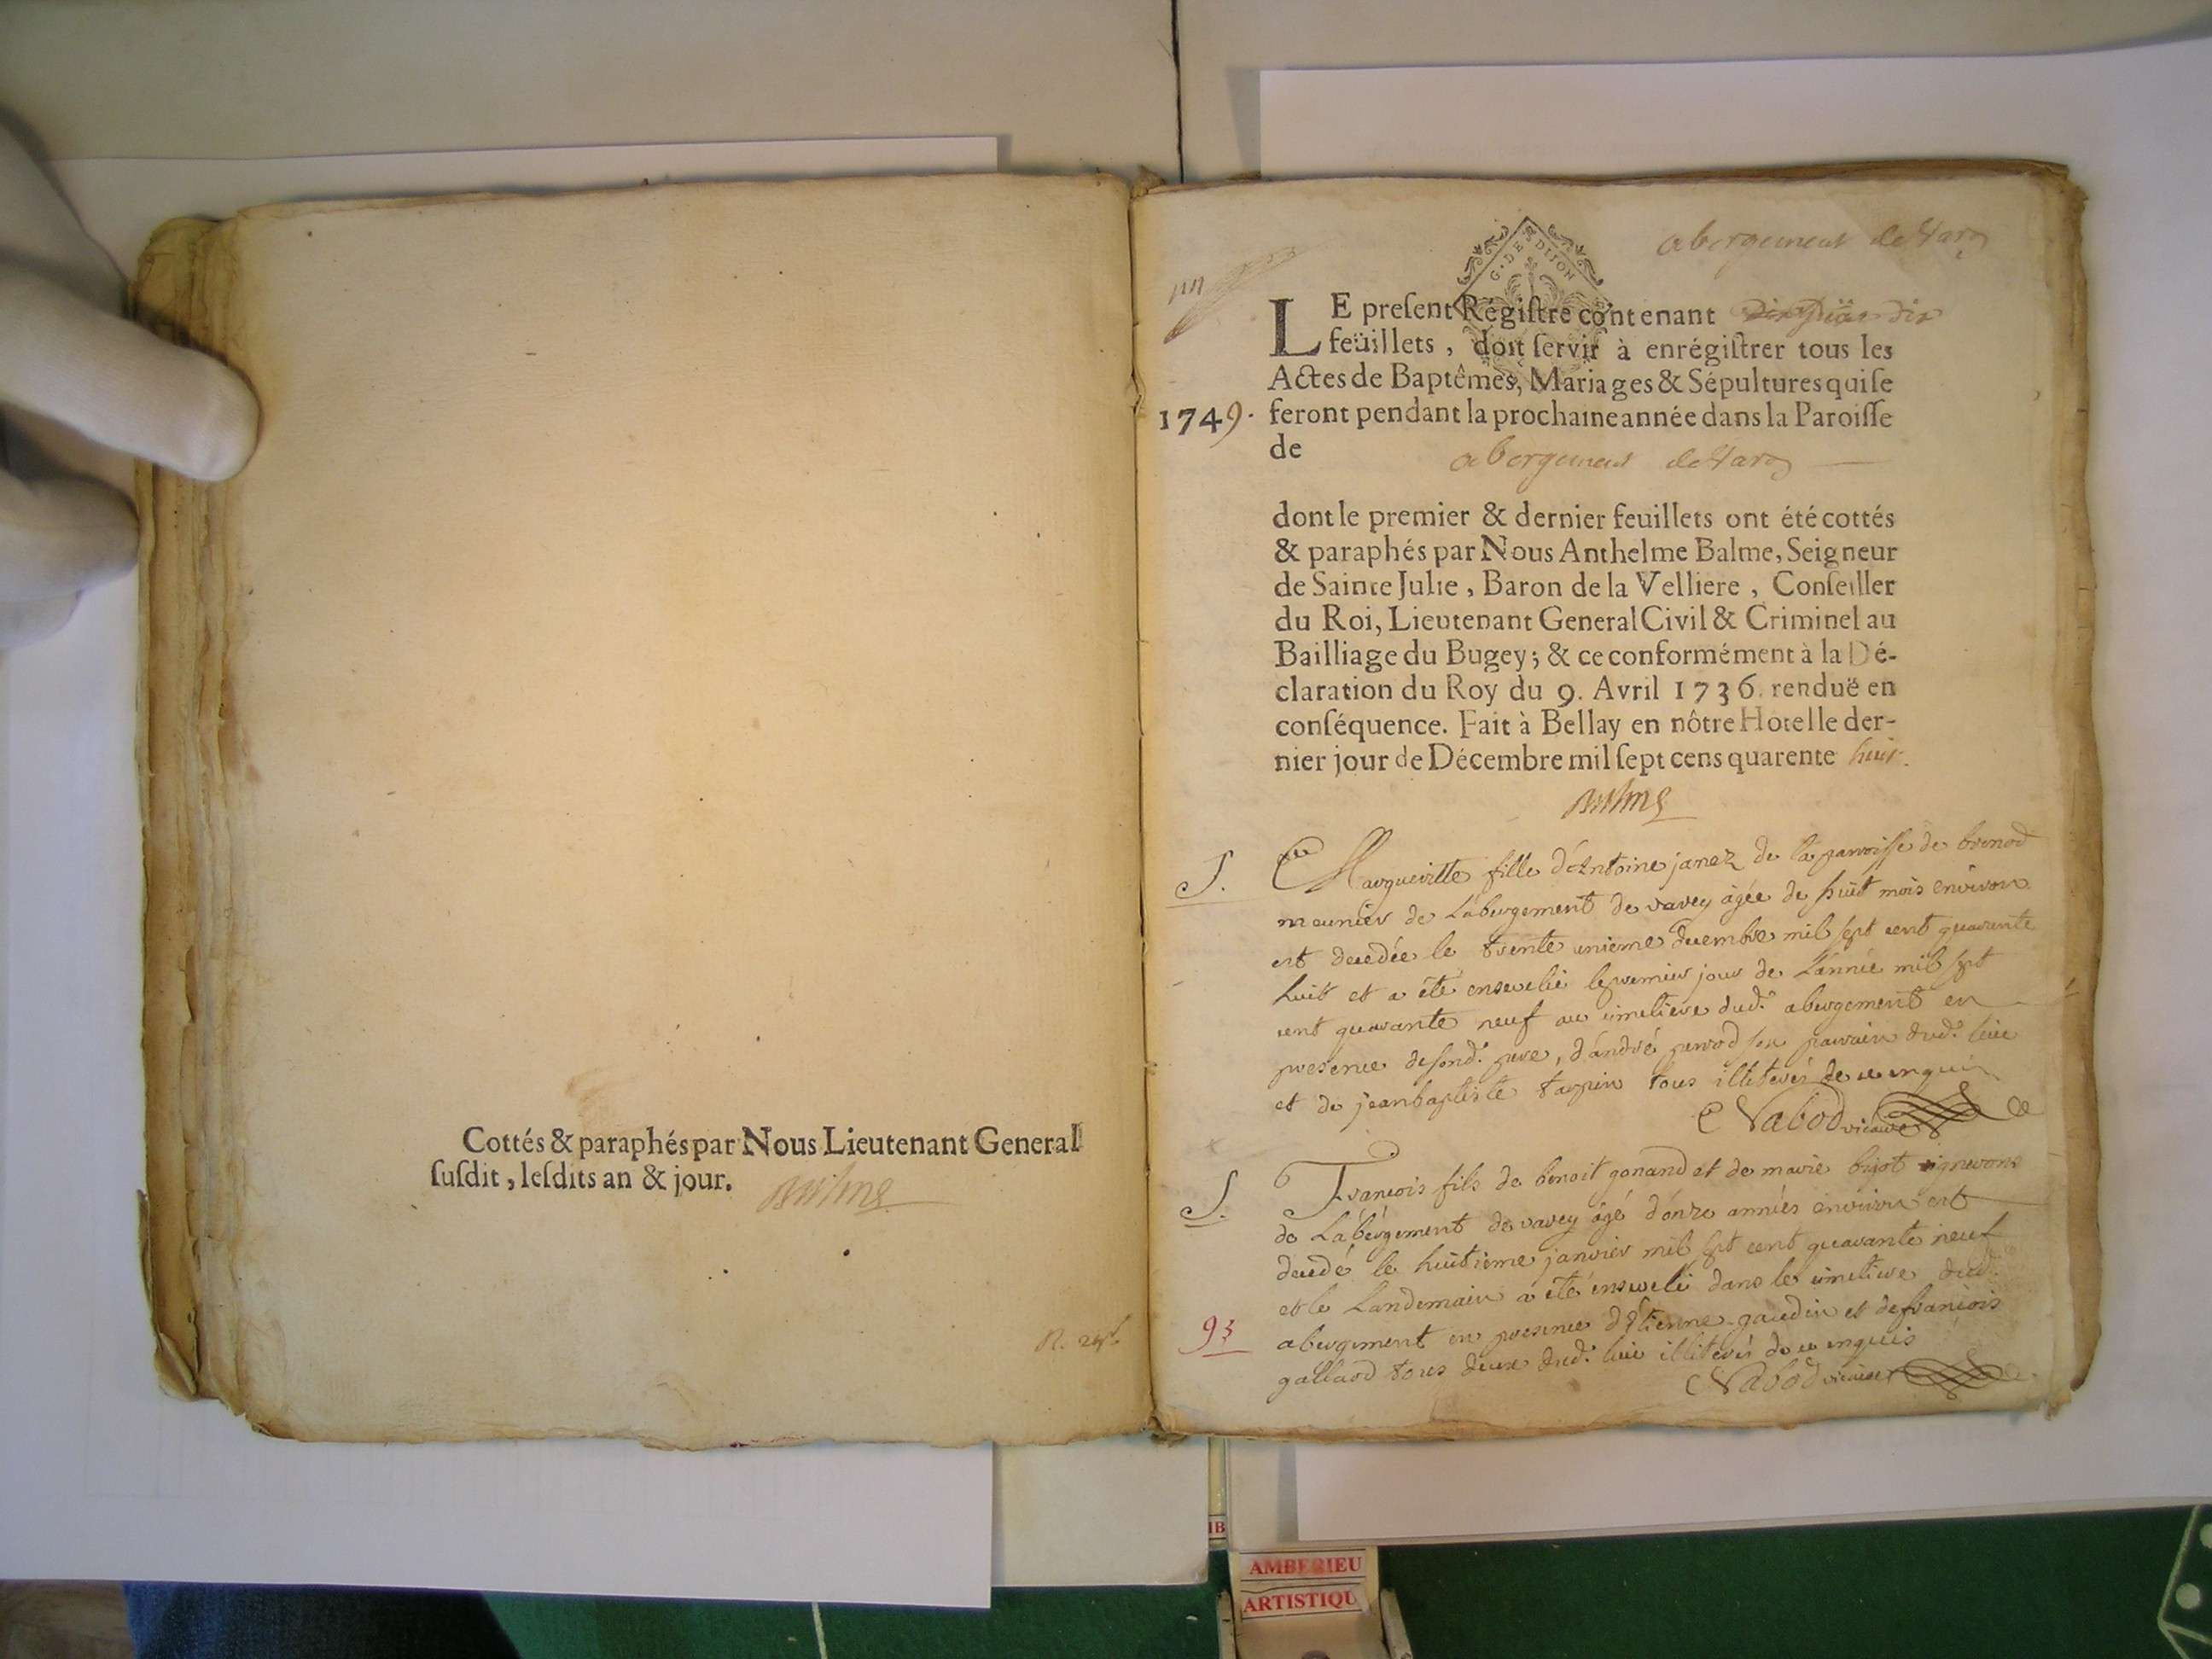 Cottés & paraphés par Nous Lieutenant General
ſuſdit, leſdits an & jour.
Balme
abergement de Varey
G. DE DIJON
LE preſent Régiſtre contenant dix
feüillets, doit ſervir à enrégiſtrer tous les
Actes de Baptêmes, Mariages & Sépultures qui ſe
1749. feront pendant la prochaine année dans la Paroiſſe
de abergement de Varey
dont le premier & dernier feuillets ont été cottés
& paraphés par Nous Anthelme Balme, Seigneur
de Sainte Julie, Baron de la Velliere, Conſeiller
du Roi, Lieutenant General Civil & Criminel au
Bailliage du Bugey; & ce conformément à la Dé-
claration du Roy du 9. Avril 1736. renduë en
conſéquence. Fait à Bellay en nôtre Hotel le der-
nier jour de Décembre mil ſept cens quarente huit.
Balme
S. Margueritte fille d'Antoine janez de la paroisse de brenod
meunier de L'abergement de varey âgée de huit mois environ
est decedée le trente unieme decembre mil sept cent quarante
huit et a été ensevelie le premier jour de L'année mil sept
cent quarante neuf au cimetiere dud. abergement en
presence de sond. pere, d'andré perrod son parrain dud. lieu
et de jean baptiste tarpin tous illiterés de ce enquis
Nabod vicaire
S. François fils de benoit gonand et de marie bigot vignerons
de L'abergement de varey âgé d'onze années environ est
decedé le huitieme janvier mil sept cent quarante neuf
et le Landemain a été enseveli dans le cimetiere dud.
93 abergement en presence d'Etienne gaudin et de françois
gallard tous deux dud. lieu illiterés de ce enquis
Nabod vicaire
AMBERIEU
ARTISTIQU